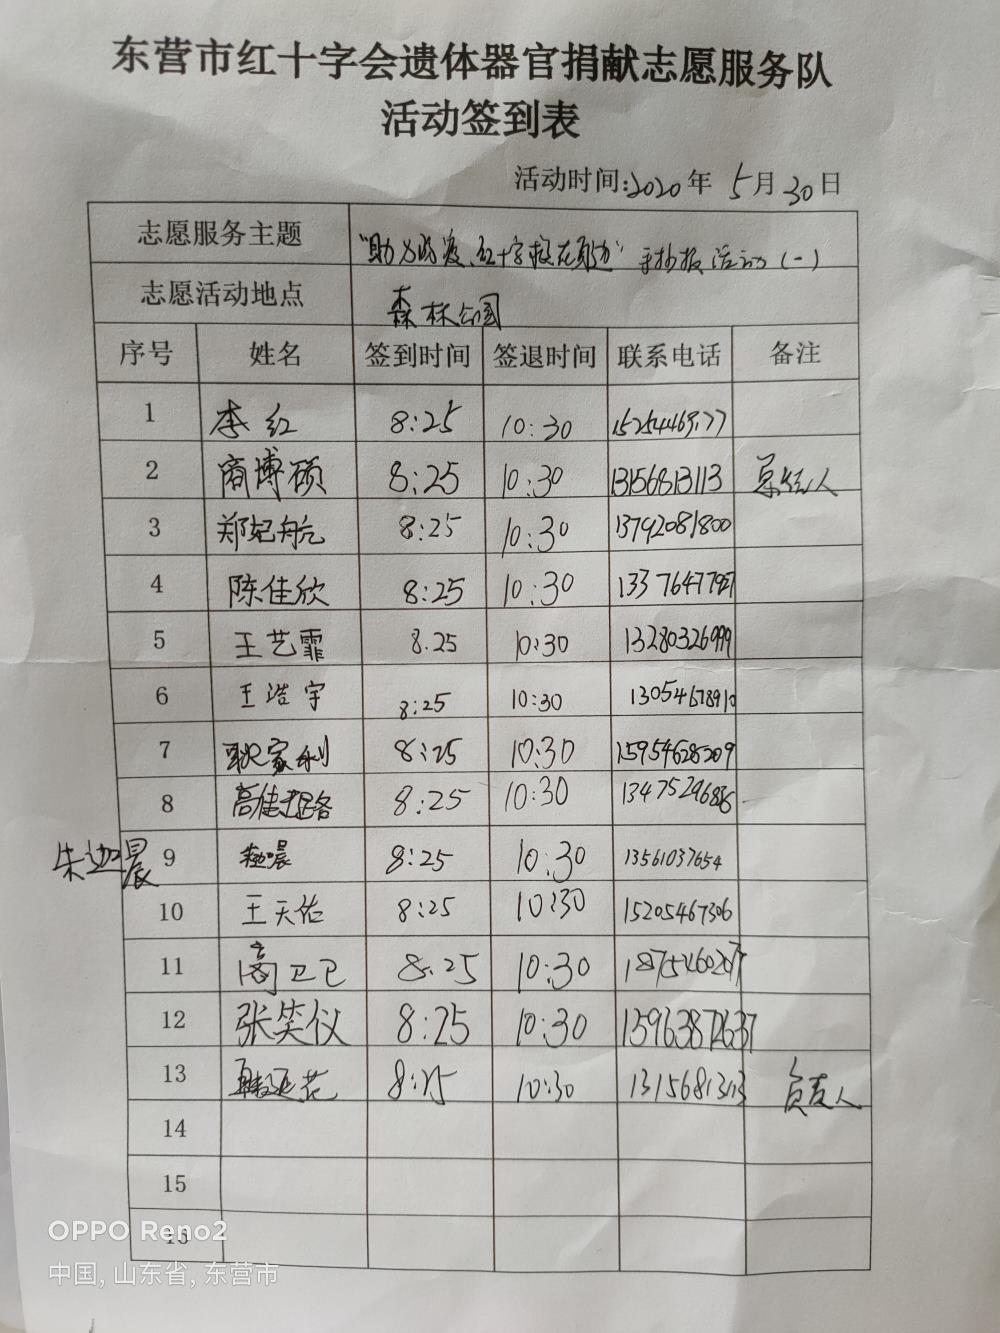 东营市红十字会遗体器官捐献志愿服务队
活动签到表
活动时间:2020年 5月30日
志愿服务主题 "助力战疫、红十字救在身边" 手抄报活动(一)
志愿活动地点 森林公园
序号 姓名 签到时间 签退时间 联系电话 备注
1 李红 8:25 10:30
2 商博硕 8:25 10:30 13156813113
3 郑妃航 8:25 10:30 13792081800
4 陈佳欣 8:25 10:30
5 王艺霏 8.25 10:30 13280326999
6 王浩宇 8:25 10:30 13054678910
7 耿家利 8:25 10:30 15954628209
8 8:25 10:30
朱迦晨 9 8:25 10:30 13561037654
10 王天佑 8:25 10:30 15205467306
11 商卫卫 8.25 10:30
12 张笑仪 8:25 10:30 15963872637
13 8:25 10:30 13156813113 负责人
14
15
16
OPPO Reno2
中国, 山东省, 东营市